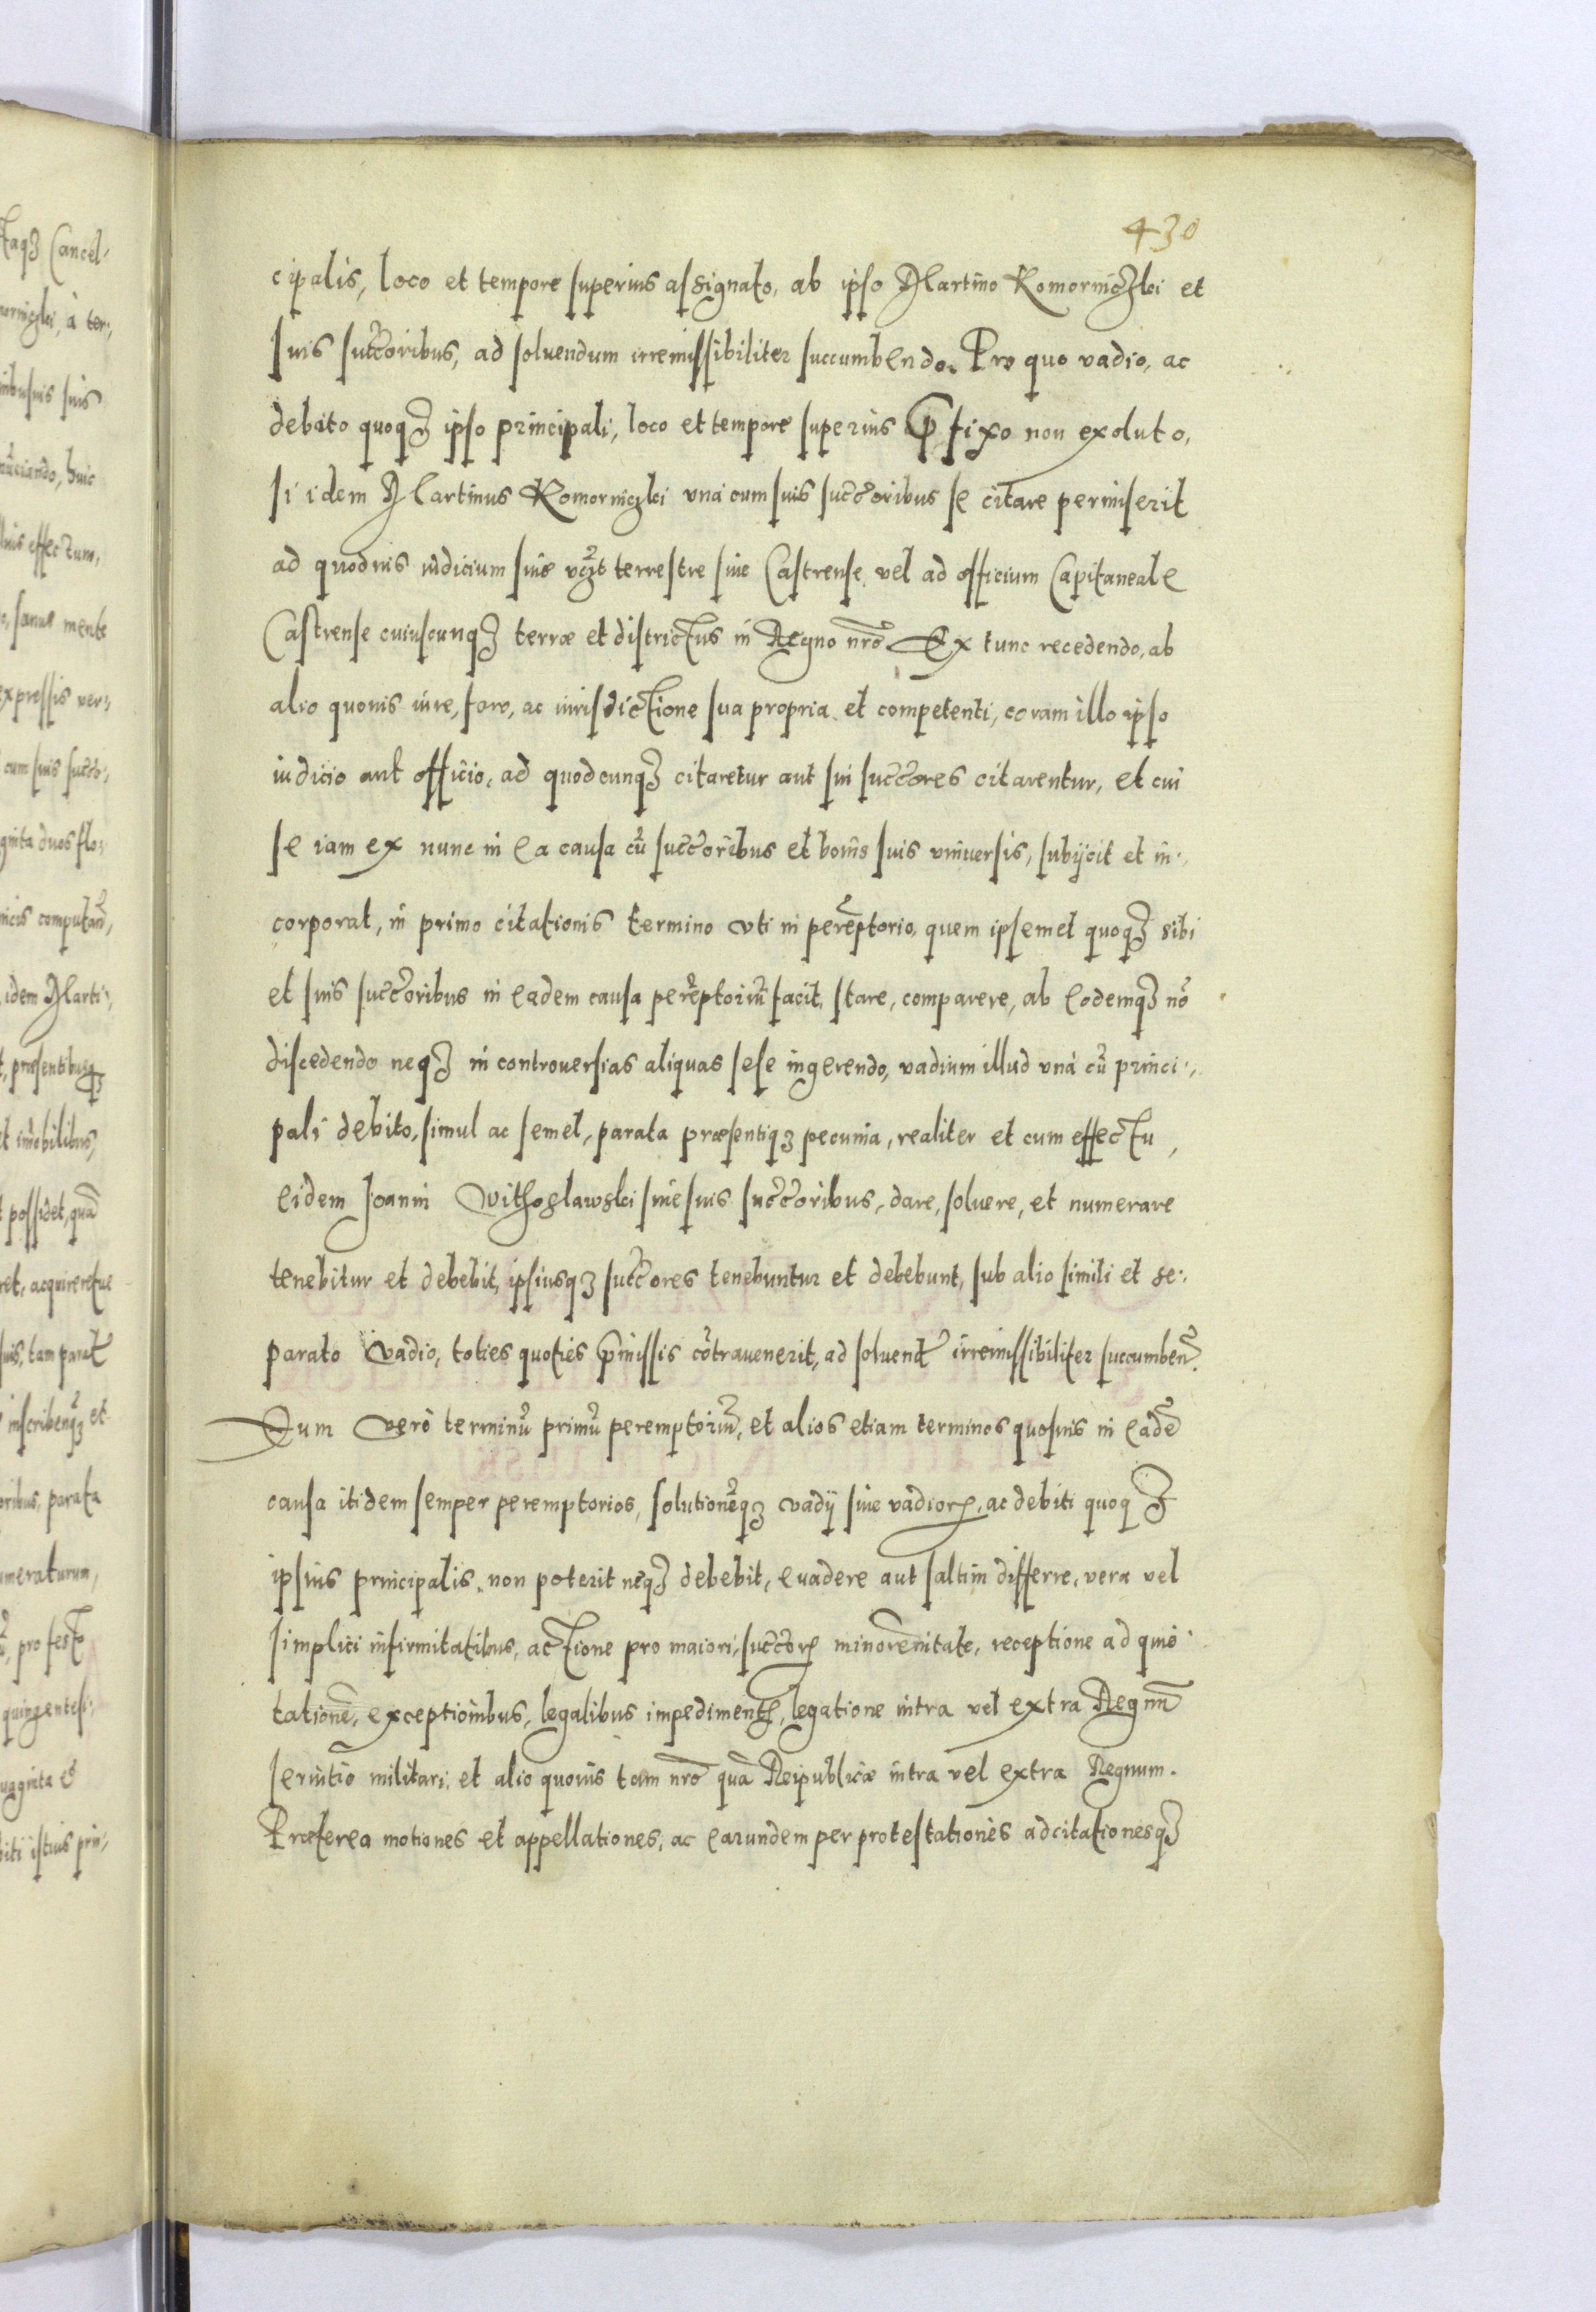 430
cipalis, loco et tempore superius assignato, ab ipso Martino Komorniczki et
suis succ̃oribus, ad soluendum irremissibiliter succumbendo. Pro quo vadio, ac
debito quoqꝫ ipso principali, loco et tempore superius p̃fixo non exoluto,
si idem Martinus Komorniczki vna cum suis succ̃oribus se citare permiserit
ad quoduis iudicium siue terrestre siue Castrense, vel ad officium Capitaneale
Castrense cuiuscunqꝫ terræ et districtus in Regno nr̃o Ex tunc recedendo, ab
alio quouis iure, foro, ac iurisdictione sua propria et competenti, coram illo ipso
iudicio aut officio, ad quodcunqꝫ citaretur aut sui succ̃ores citarentur, et cui
se iam ex nunc in ea causa cũ succ̃oribus et bonis suis vniuersis, subijcit et in-
corporat, in primo citationis termino vti in perẽptorio, quem ipsemet quoqꝫ sibi
et suis succ̃oribus in eadem causa perẽptoriũ facit, stare, comparere, ab eodemqꝫ nõ
discedendo neqꝫ in controuersias aliquas sese ingerendo, vadium illud vnà cũ princi-
pali debito, simul ac semel, parata præsentiqꝫ pecunia, realiter et cum effectu,
eidem Joanni Withoslawski siue suis succ̃oribus, dare, soluere, et numerare
tenebitur et debebit, ipsiusqꝫ succ̃ores tenebuntur et debebunt, sub alio simili et se-
parato vadio, toties quoties p̃missis cõtrauenerit, ad soluend̃ irremissibiliter succumbeñ.
Dum verò terminũ primũ peremptoriũ, et alios etiam terminos quosuis in eadẽ
causa itidem semper peremptorios, solutionẽqꝫ vadij siue vadiorꝝ, ac debiti quoqꝫ
ipsius principalis, non poterit neqꝫ debebit, euadere aut saltim differre, vera vel
simplici infirmitatibus, actione pro maiori, succ̃orꝝ minorẽnitate, receptione ad quie-
tationẽ, exceptionibus, legalibus impedimentꝭ, legatione intra vel extra Regnũ
seruitio militari, et alio quouis tam nr̃o quã Reipublicæ intra vel extra Regnum.
Præterea motiones et appellationes, ac earundem per protestationes adcitationesqꝫ